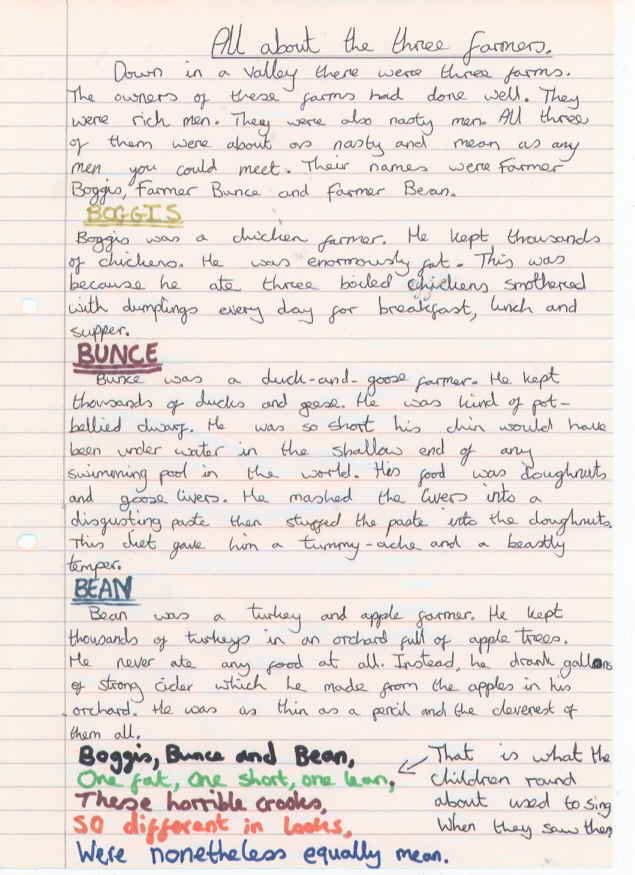 All about the three farmers.
Down in a valley there were three farms.
The owners of these farms had done well. They
were rich men. They were also nasty men. All three
of them were about as nasty and mean as any
men you could meet. Their names were Farmer
Boggis, Farmer Bunce and Farmer Bean.
BOGGIS
Boggis was a chicken farmer. He kept thousands
of chickens. He was enormously fat. This was
because he ate three boiled chickens smothered
with dumplings every day for breakfast, lunch and
supper.
BUNCE
Bunce was a duck-and-goose farmer. He kept
thousands of ducks and geese. He was kind of pot-
bellied dwarf. He was so short his chin would have
been under water in the shallow end of any
swimming pool in the world. His food was doughnuts
and goose livers. He mashed the livers into a
disgusting paste then stuffed the paste into the doughnuts.
This diet gave him a tummy-ache and a beastly
temper.
BEAN
Bean was a turkey and apple farmer. He kept
thousands of turkeys in an orchard full of apple trees.
He never ate any food at all. Instead, he drank gallons
of strong cider which he made from the apples in his
orchard. He was as thin as a pencil and the cleverest of
them all.
Boggis, Bunce and Bean,
One fat, One short, one lean,
These horrible crooks,
SO different in looks,
Were nonetheless equally mean.
That is what the
children round
about used to sing
When they saw them